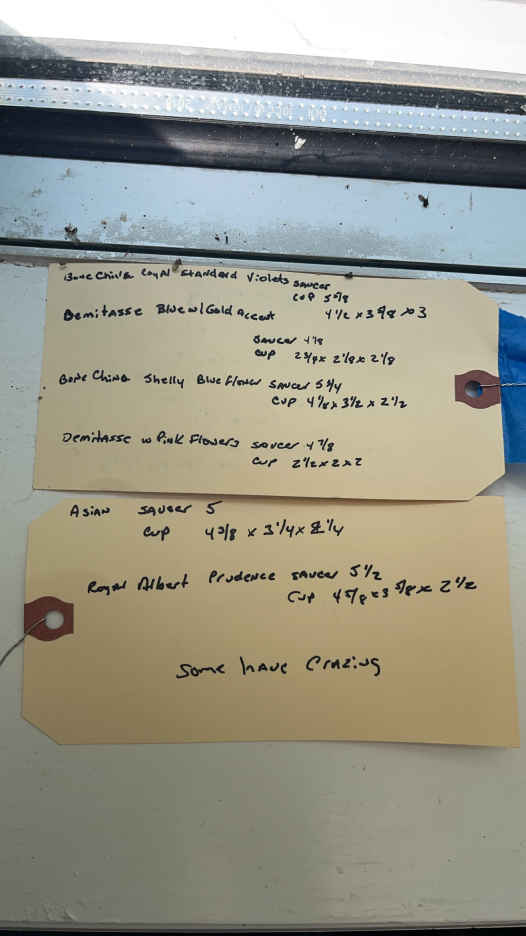 Bone China Royal Standard Violets saucer
cup 5 5/8
4 1/2 x 3 5/8 x 3
Demitasse Blue w/ Gold Accent
saucer 4 7/8
cup 2 3/4 x 2 1/8 x 2 1/8
Bone China Shelly Blue Flower saucer 5 3/4
cup 4 1/8 x 3 1/2 x 2 1/2
Demitasse w Pink Flowers saucer 4 7/8
cup 2 1/2 x 2 x 2
Asian saucer 5
cup 4 3/8 x 3 1/4 x 2 1/4
Royal Albert Prudence saucer 5 1/2
cup 4 5/8 x 3 5/8 x 2 1/2
Some have Crazing